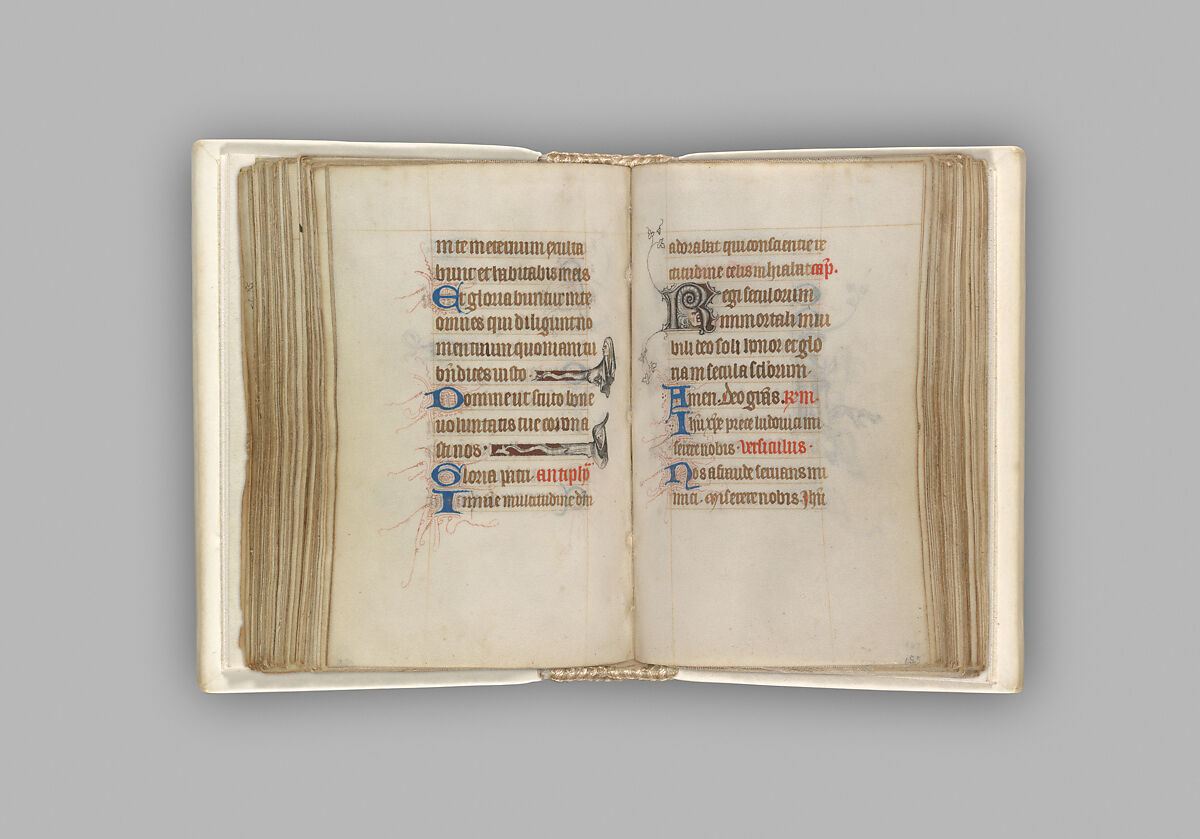 in te in eternum exulta
bunt et habitabis in eis
Et gloriabuntur in te
omnes qui diligunt no
men tuum quoniam tu
bn̄dices iusto
Domine ut scuto bone
uoluntatis tue corona
sti nos
Gloria pat̄ antiph̄
In multitudine
adorabat qui conscientie re
titudine celis inhiabat cap̄.
Regi seculorum
immortali inui
sibili deo soli honor et glo
ria in secula sc̄lorum.
Amen. Deo gr̄as. R̄m.
Ih̄u xp̄e prece ludouici mi
serere nobis. Versiculus.
Nos a fraude seruans ini
mici. miserere nobis. Ih̄u